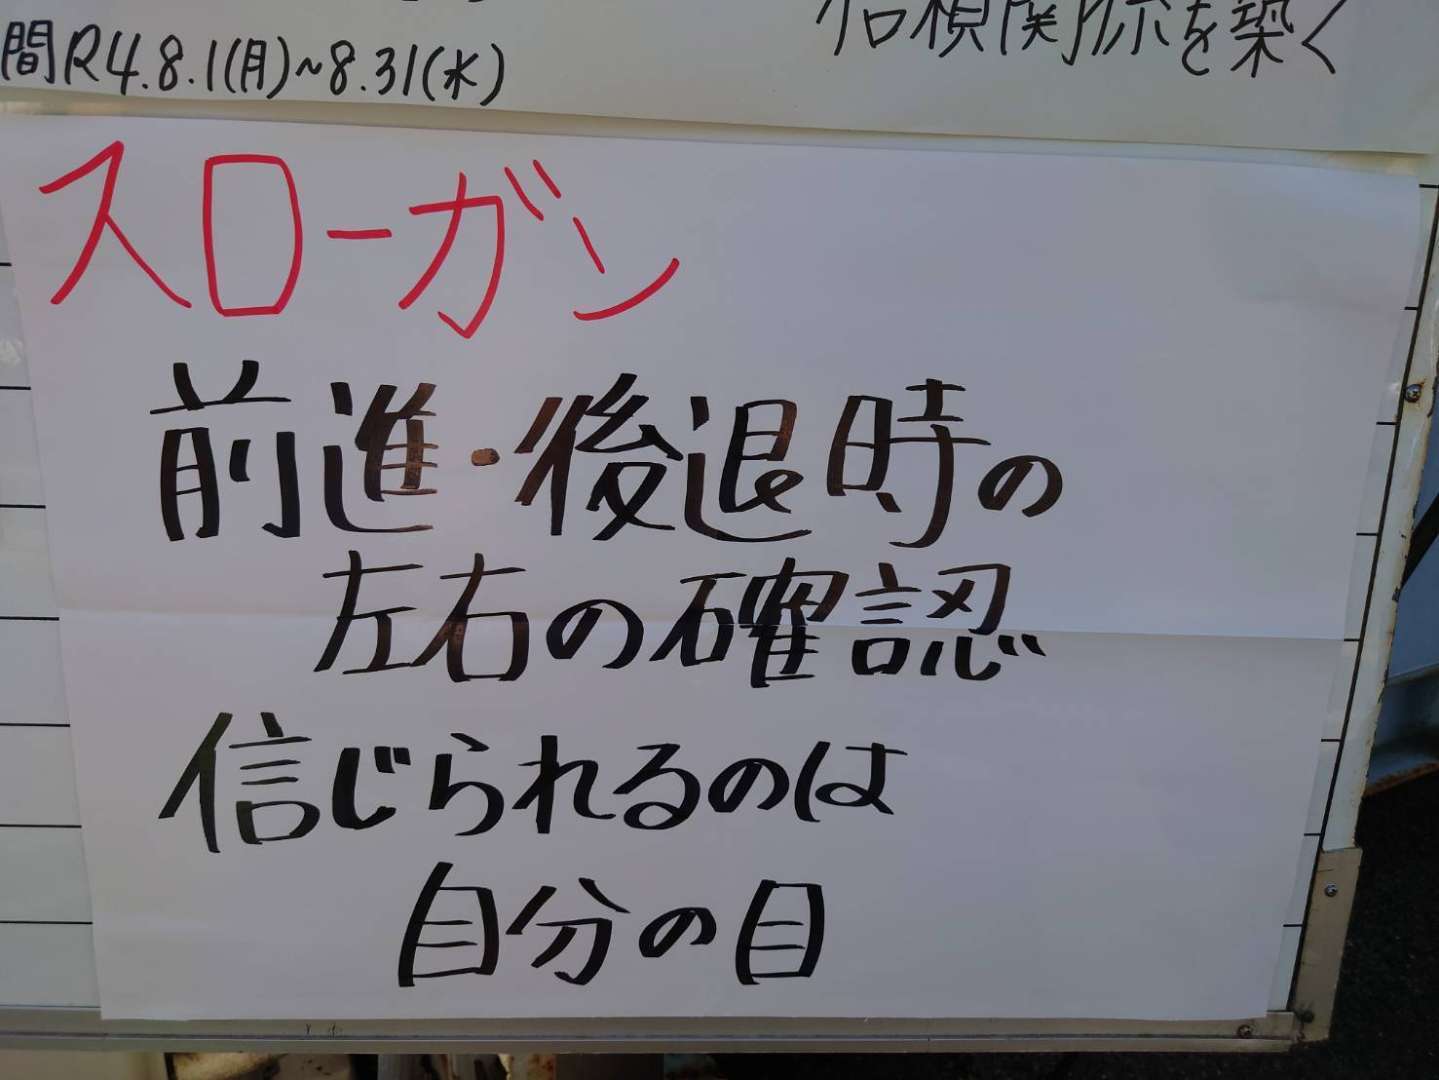 間R4.8.1(月)~8.31(水)
信頼関係を築く
スローガン
前進・後退時の
左右の確認
信じられるのは
自分の目